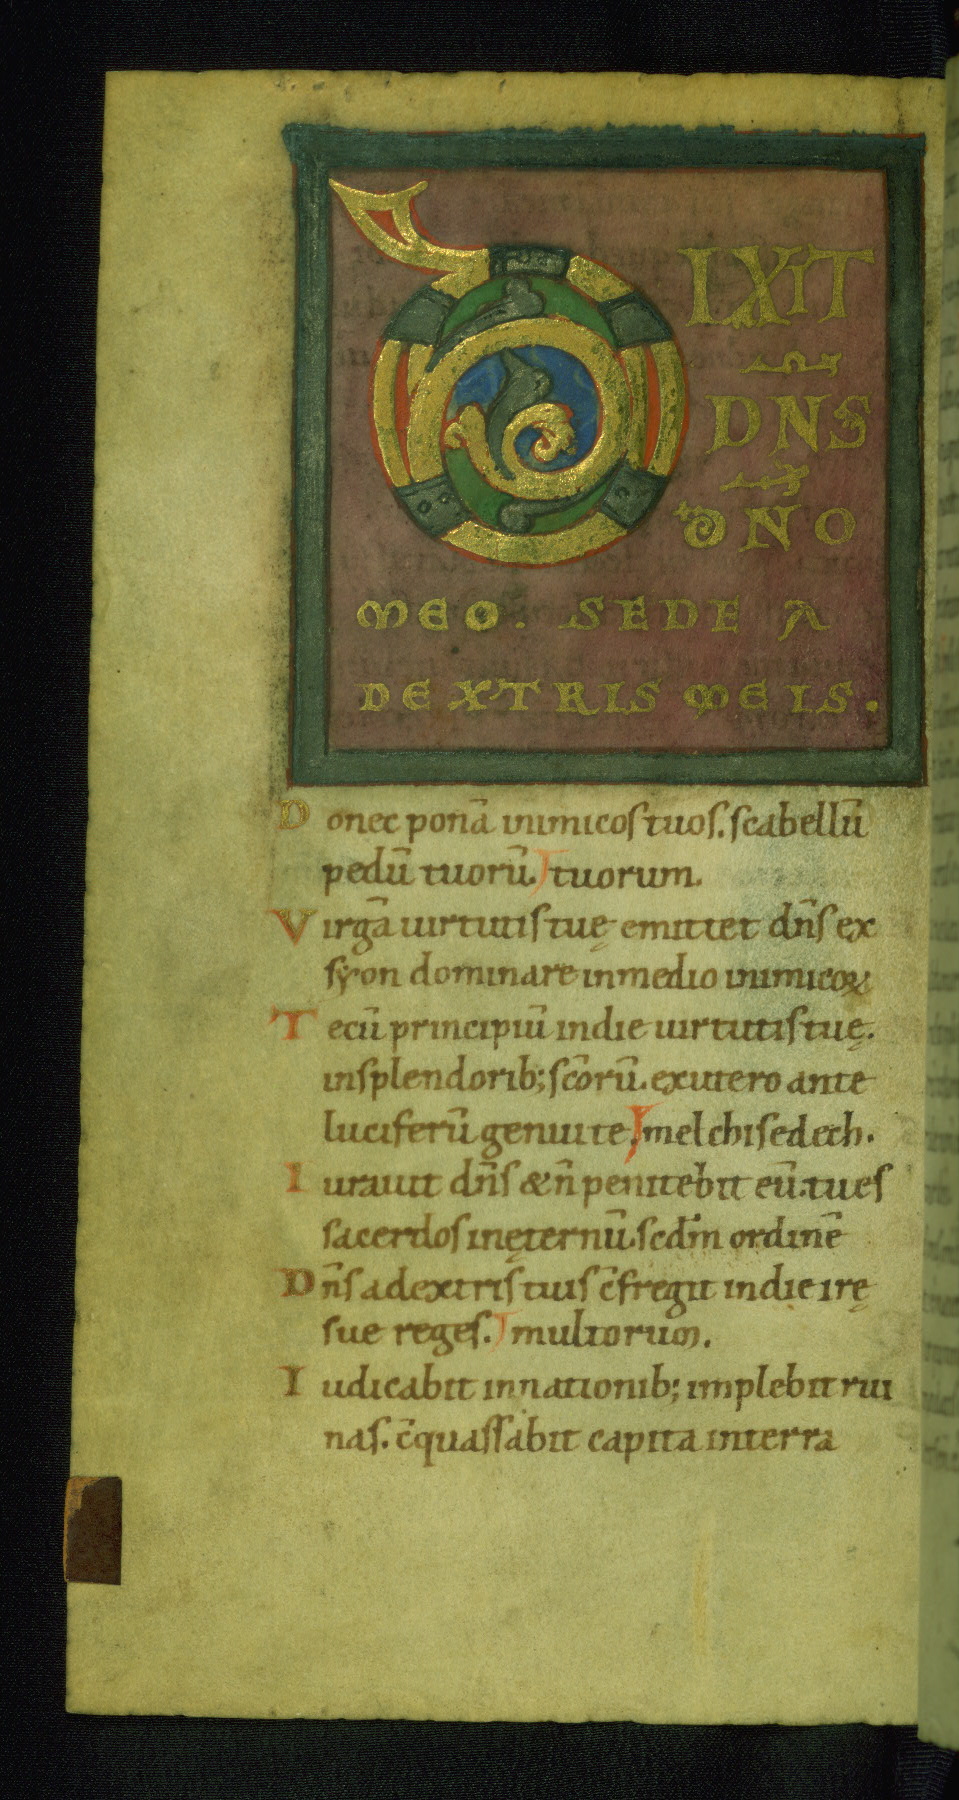 DIXIT
DNS
DNO
MEO. SEDE A
DEXTRIS MEIS.
Donec ponā inimicos tuos. scabellū
pedū tuorū. tuorum.
Virgā uirtutis tuę emittet dn̄s ex
syon dominare inmedio inimicoꝝ
Tecū principiū indie uirtutis tuę.
insplendorib; scōrū. exutero ante
luciferū genui te. melchisedech.
Iurauit dn̄s & n̄ penitebit eū. tu es
sacerdos inęternū. scdm̄ ordinē
Dn̄s adextris tuis c̄fregit indie irę
sue reges. multorum.
Iudicabit innationib; implebit rui
nas. c̄quassabit capita interra